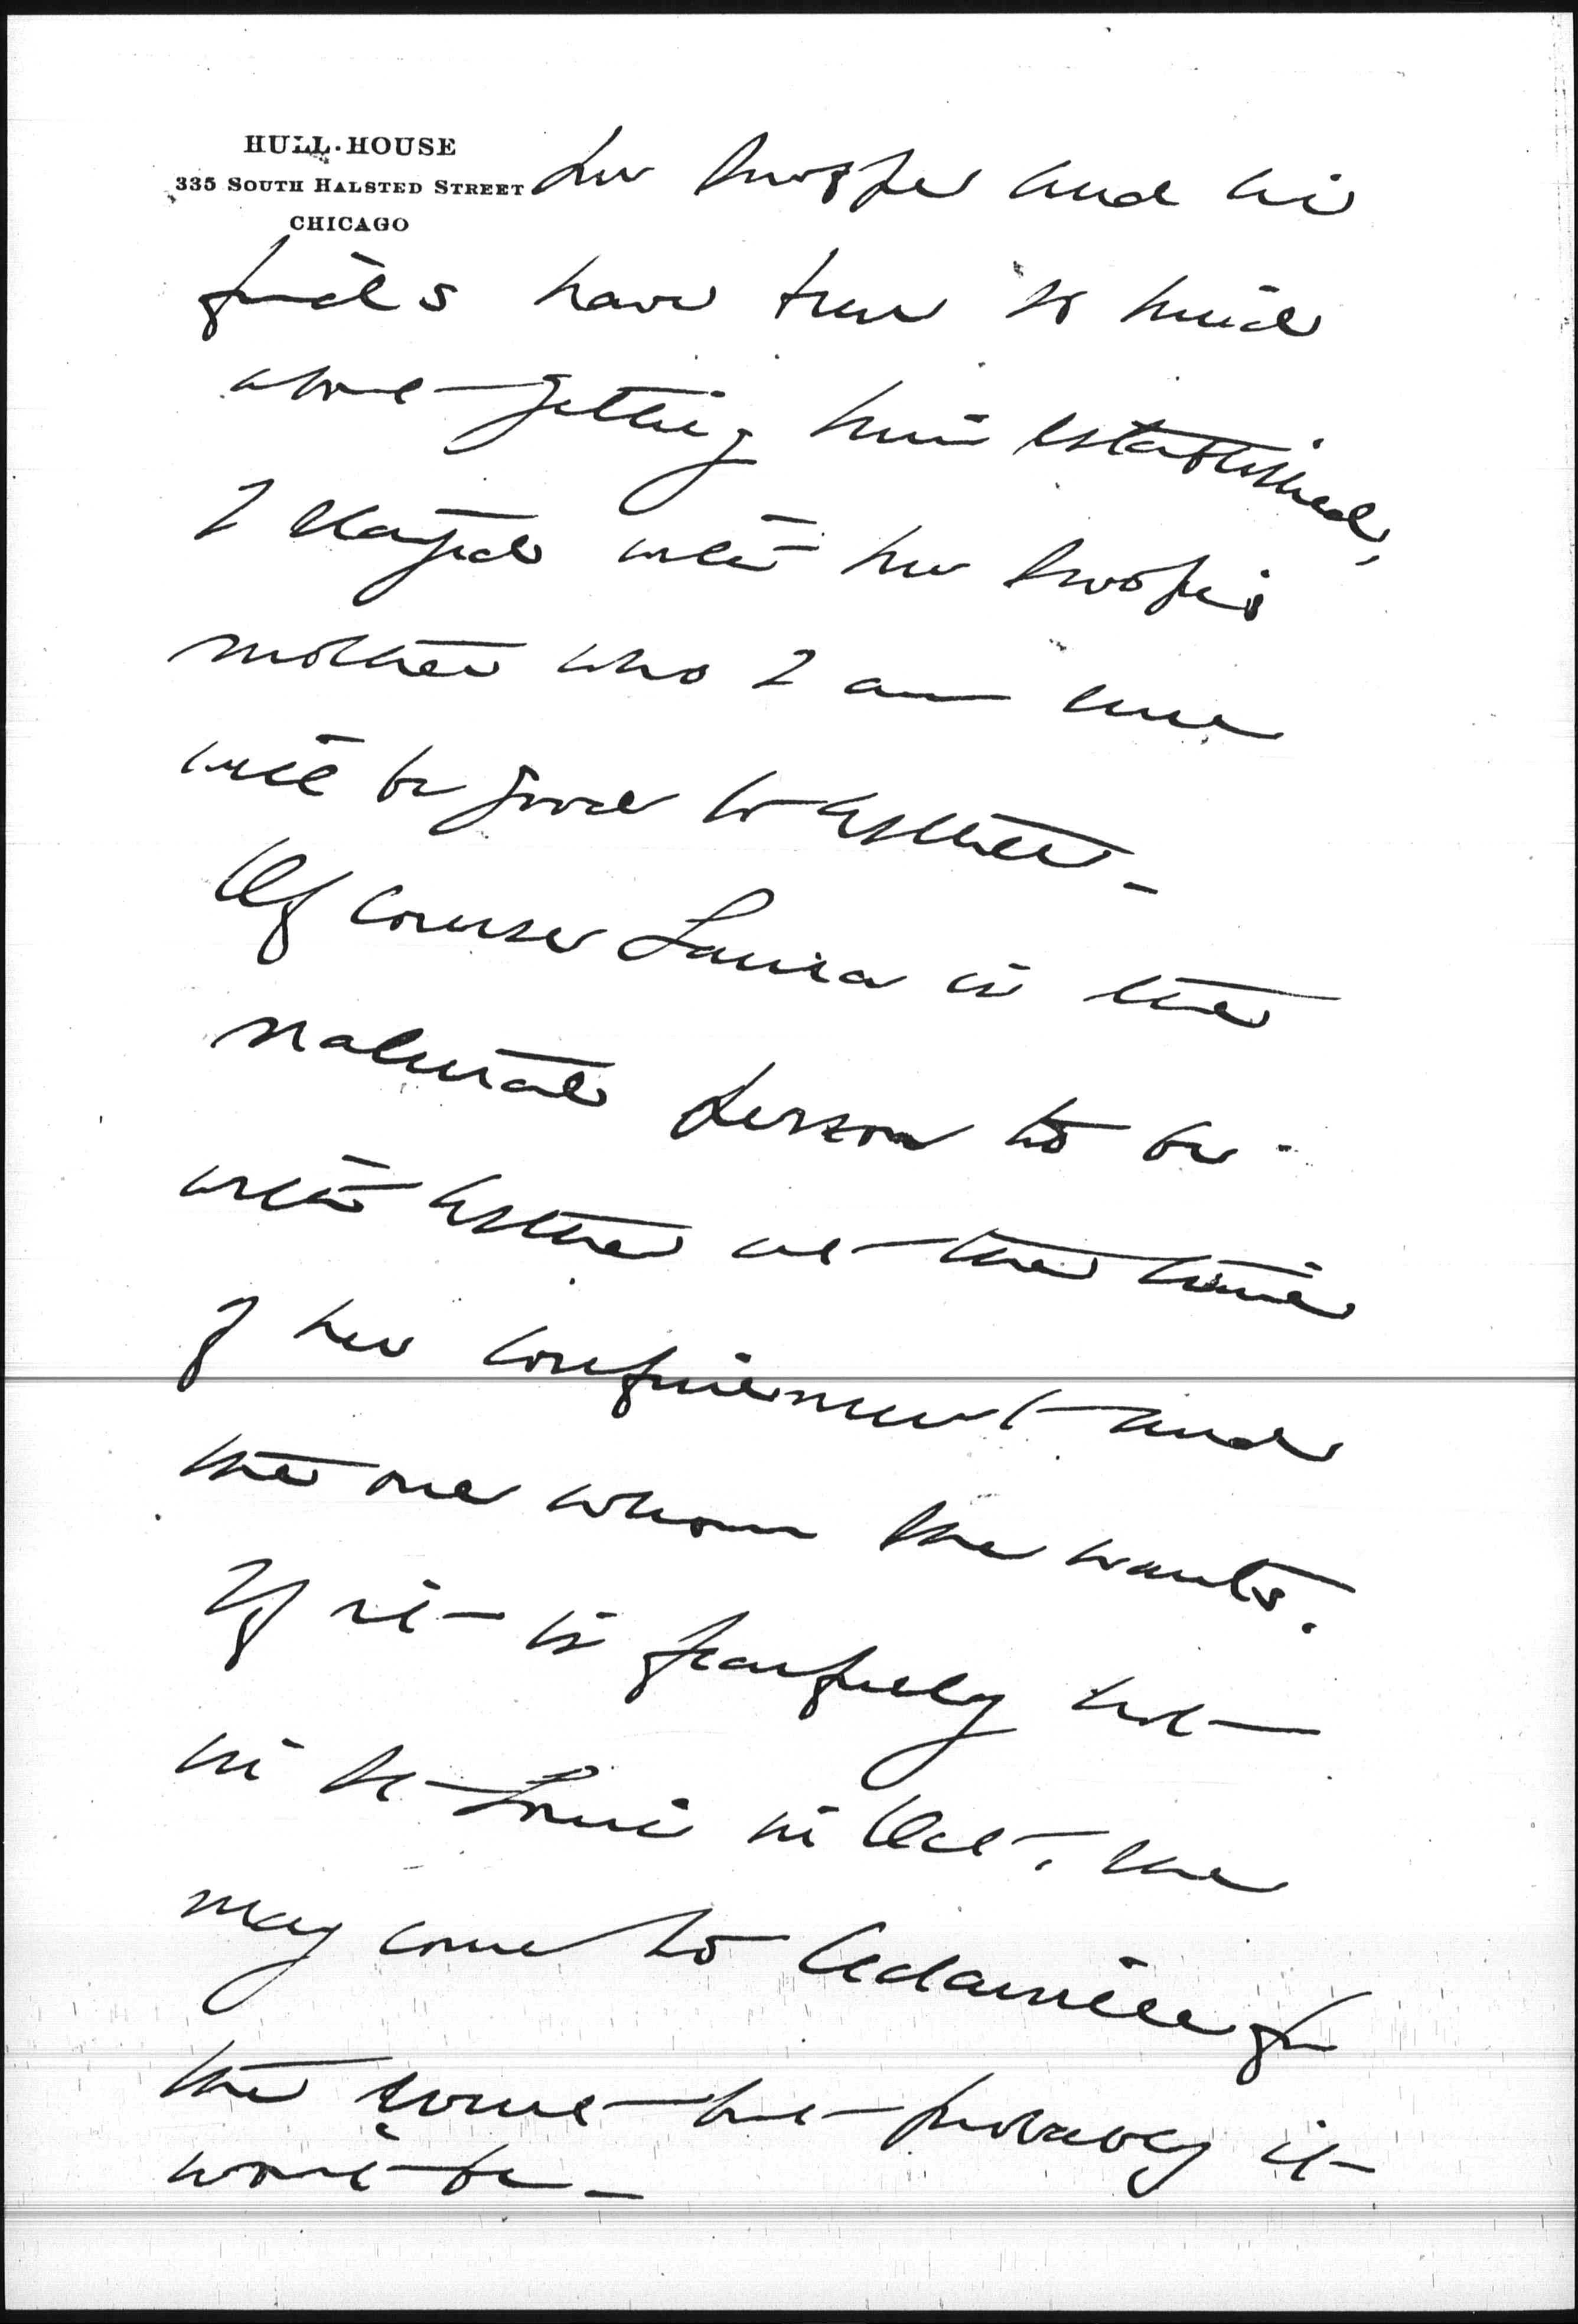 HULL-HOUSE
335 SOUTH HALSTED STREET
CHICAGO
and his
friends have been so kind
about getting him established,
I stayed with Mr Hooker's
mother who I am sure
will be good to Esther –
Of course Laura is the
natural person to be
with Esther at the time
of her confinement and
the one whom she wants.
If it is fearfully hot
in St Louis in Oct. she
may come to Cedarville for
the event but probably it
won't be –